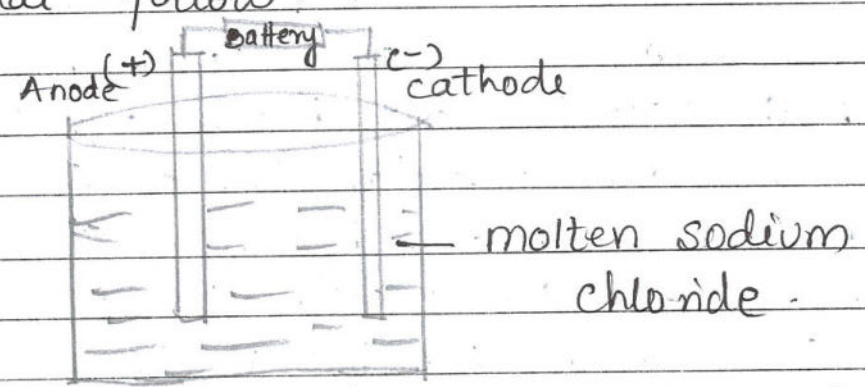 Battery
(+) (-)
Anode cathode
molten sodium
chloride.